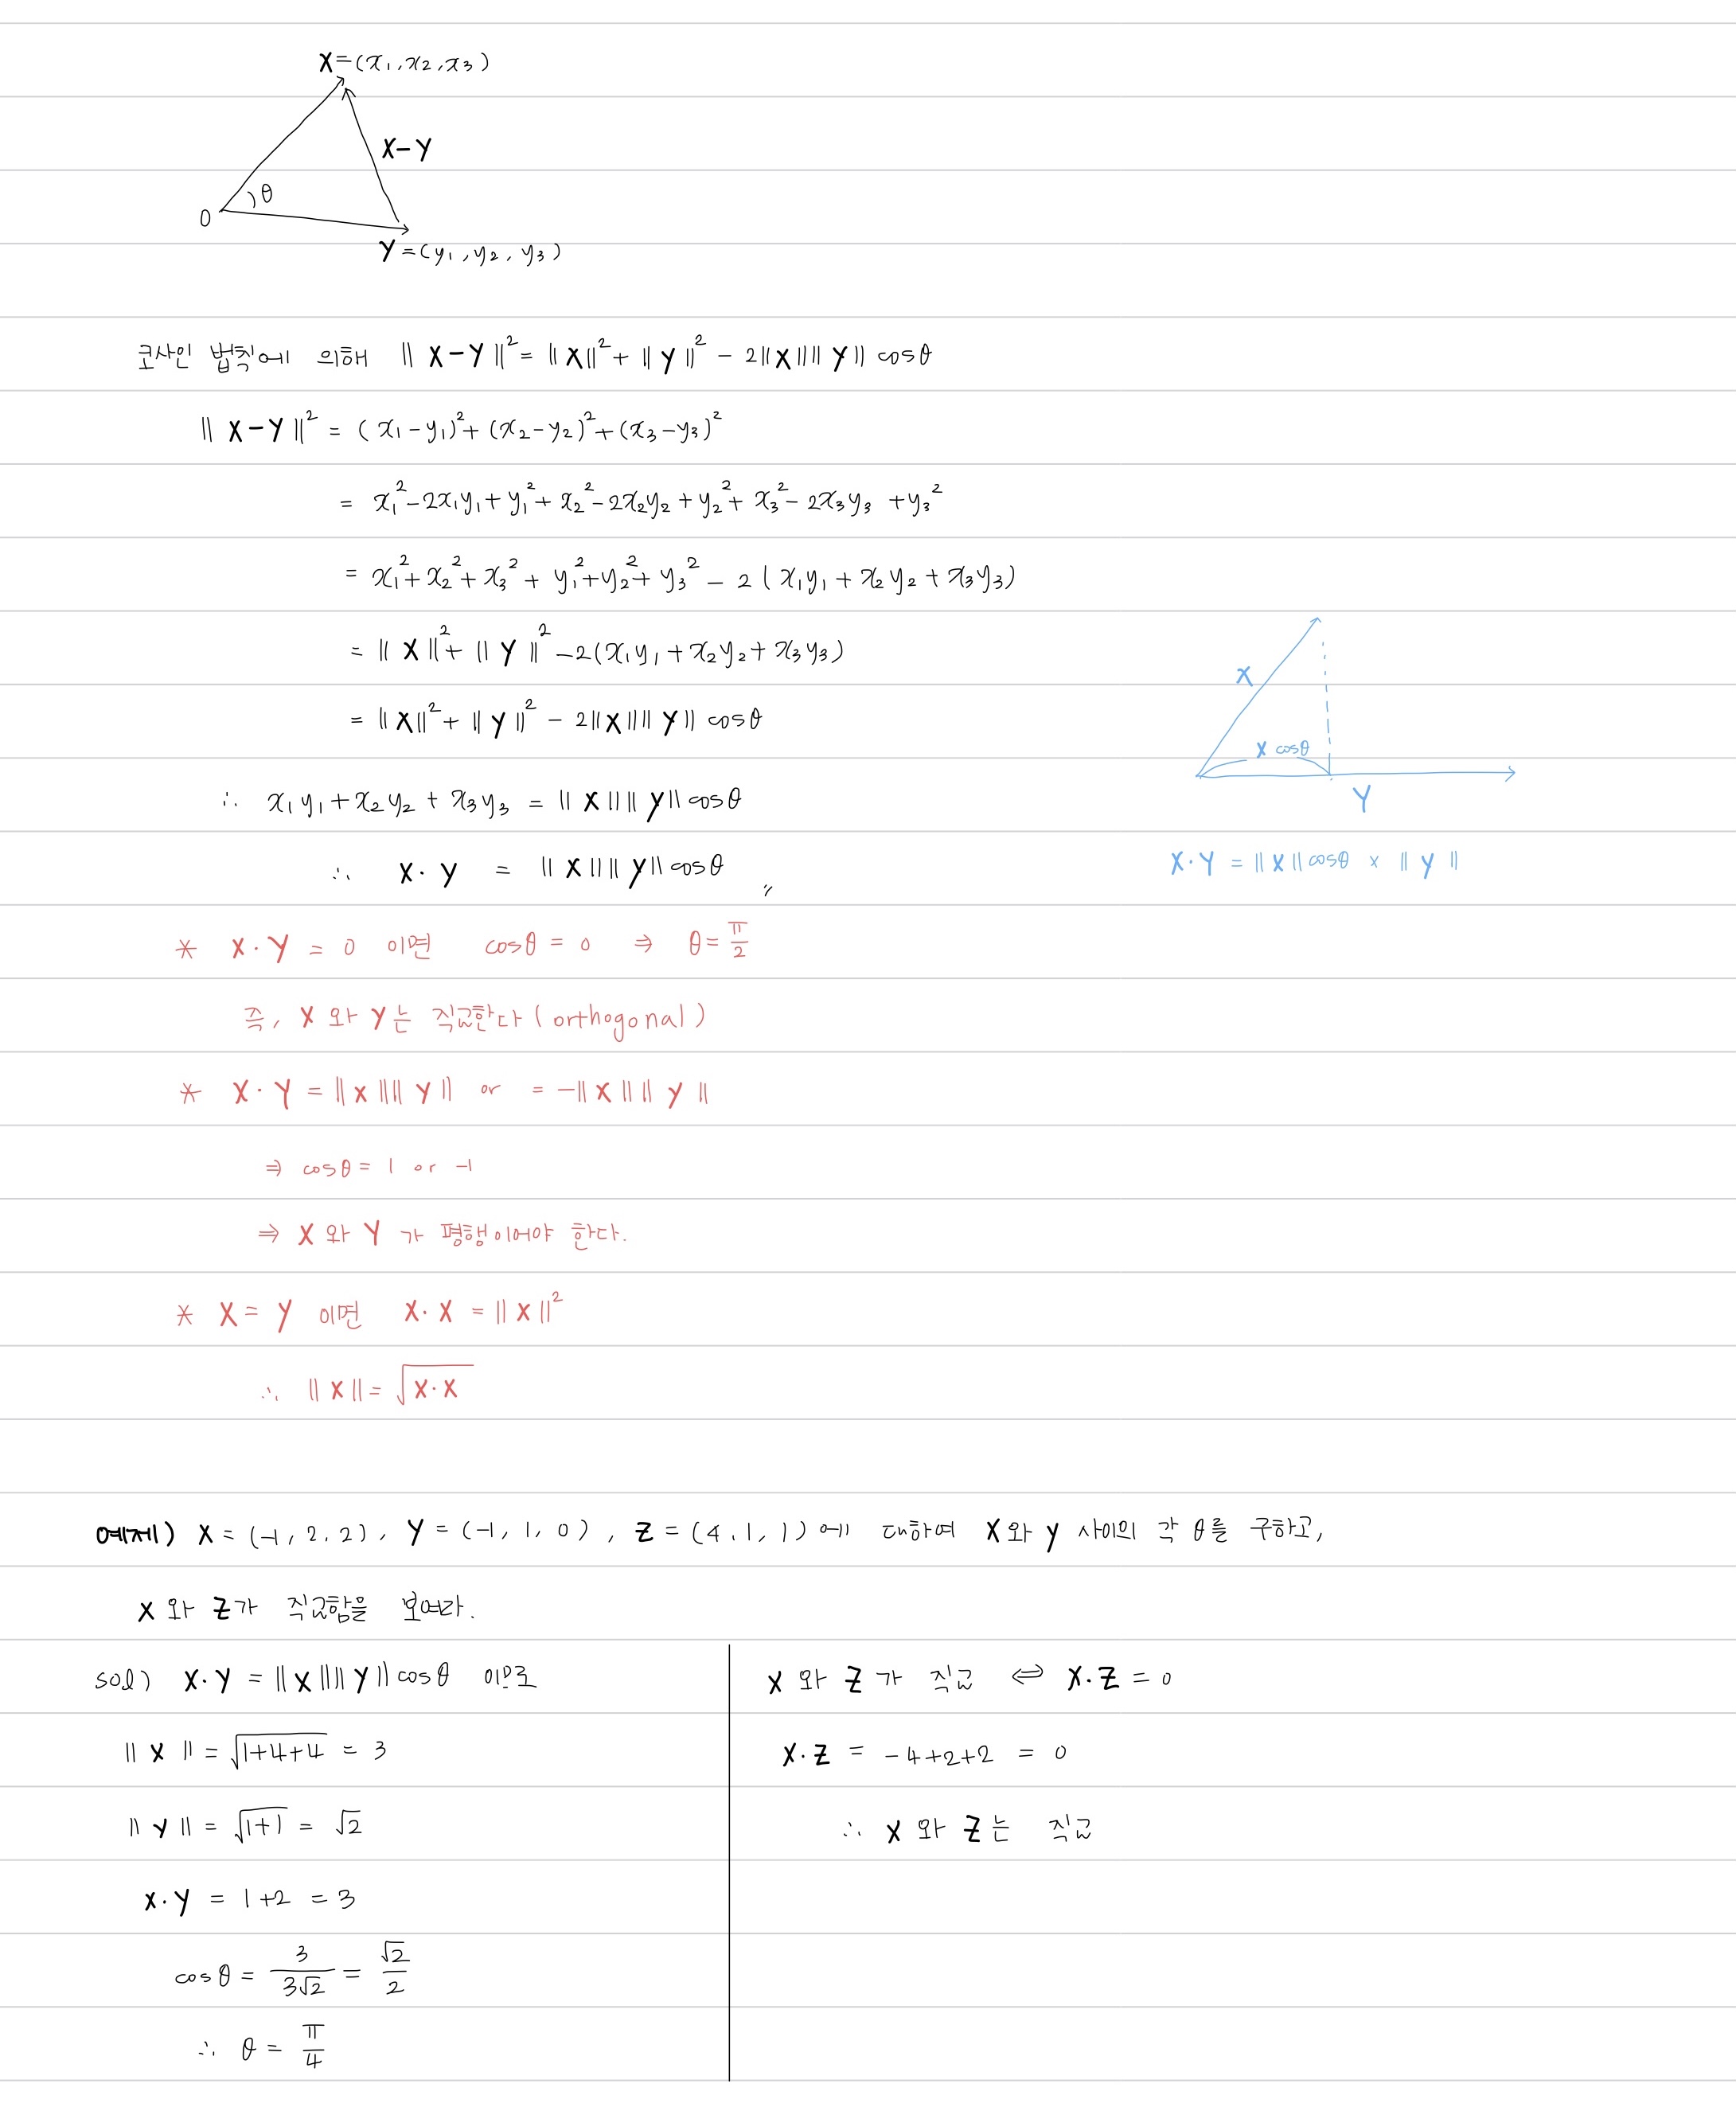 X=(x₁,x₂,x₃)
X-Y
θ
0
Y=(y₁,y₂,y₃)
코사인 법칙에 의해 ||X-Y||²=||X||²+||Y||²-2||X||||Y||cosθ
||X-Y||² = (x₁-y₁)²+(x₂-y₂)²+(x₃-y₃)²
= x₁²-2x₁y₁+y₁²+x₂²-2x₂y₂+y₂²+x₃²-2x₃y₃+y₃²
= x₁²+x₂²+x₃²+y₁²+y₂²+y₃²-2(x₁y₁+x₂y₂+x₃y₃)
= ||X||²+||Y||²-2(x₁y₁+x₂y₂+x₃y₃)
= ||X||²+||Y||²-2||X||||Y||cosθ
∴ x₁y₁+x₂y₂+x₃y₃ = ||X||||Y||cosθ
∴ X·Y = ||X||||Y||cosθ
X
X cosθ
Y
X·Y = ||X||cosθ × ||Y||
* X·Y = 0 이면 cosθ = 0 ⇒ θ = π/2
즉, X와 Y는 직교한다(orthogonal)
* X·Y = ||X||||Y|| or = -||X||||Y||
⇒ cosθ = 1 or -1
⇒ X와 Y가 평행이어야 한다.
* X = Y 이면 X·X = ||X||²
∴ ||X|| = √(X·X)
예제) X = (-1, 2, 2), Y = (-1, 1, 0), Z = (4, 1, 1)에 대하여 X와 Y 사이의 각 θ를 구하고,
X와 Z가 직교함을 보여라.
sol) X·Y = ||X||||Y||cosθ 이므로
||X|| = √(1+4+4) = 3
||Y|| = √(1+1) = √2
X·Y = 1+2 = 3
cosθ = 3/(3√2) = √2/2
∴ θ = π/4
X와 Z가 직교 ⇔ X·Z = 0
X·Z = -4+2+2 = 0
∴ X와 Z는 직교